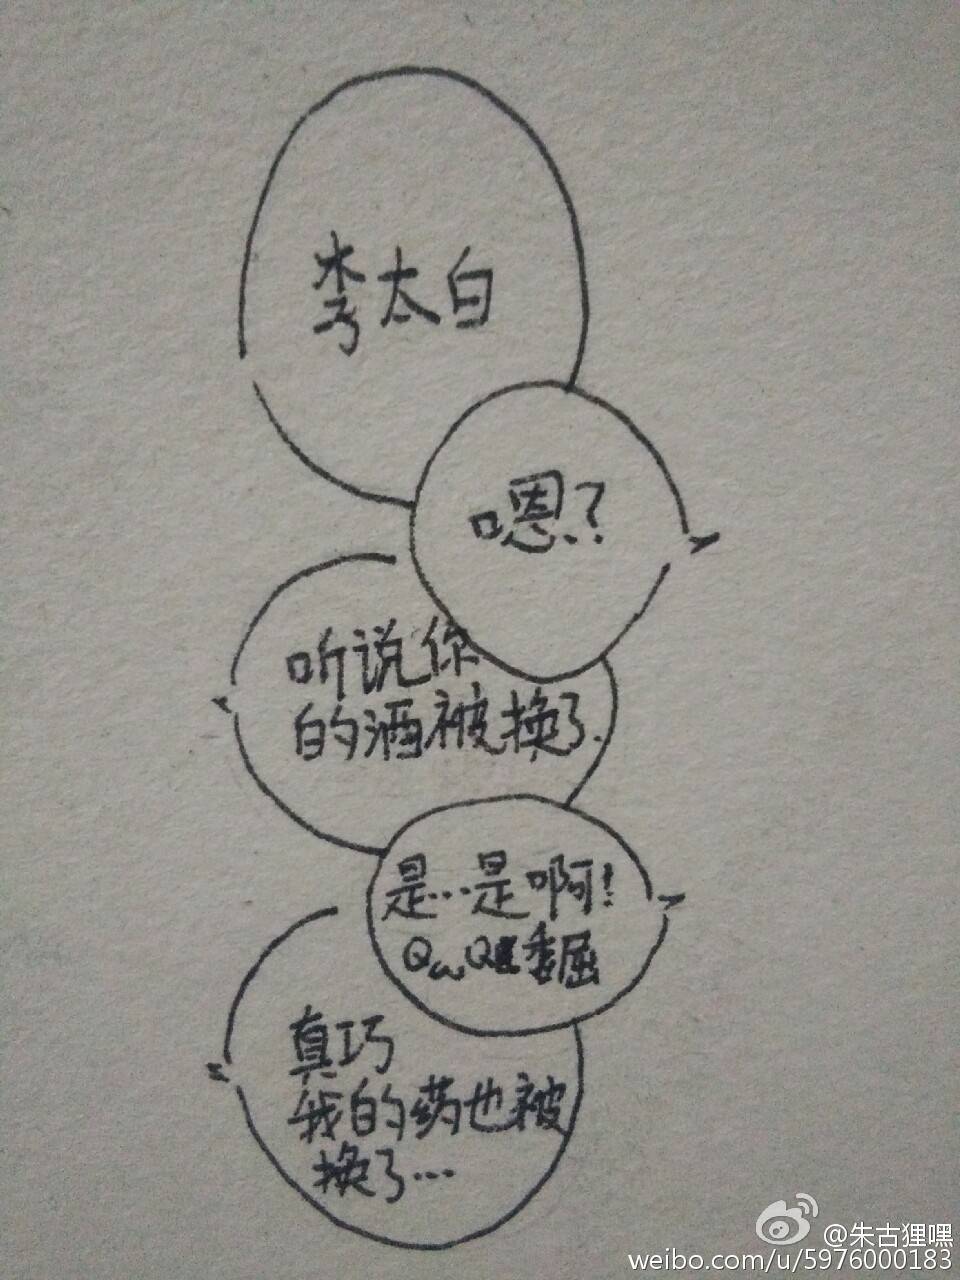 李太白
嗯?
听说你
的酒被换了.
是…是啊!
QωQ委屈
真巧
我的药也被
换了…
@朱古狸嘿
weibo.com/u/5976000183